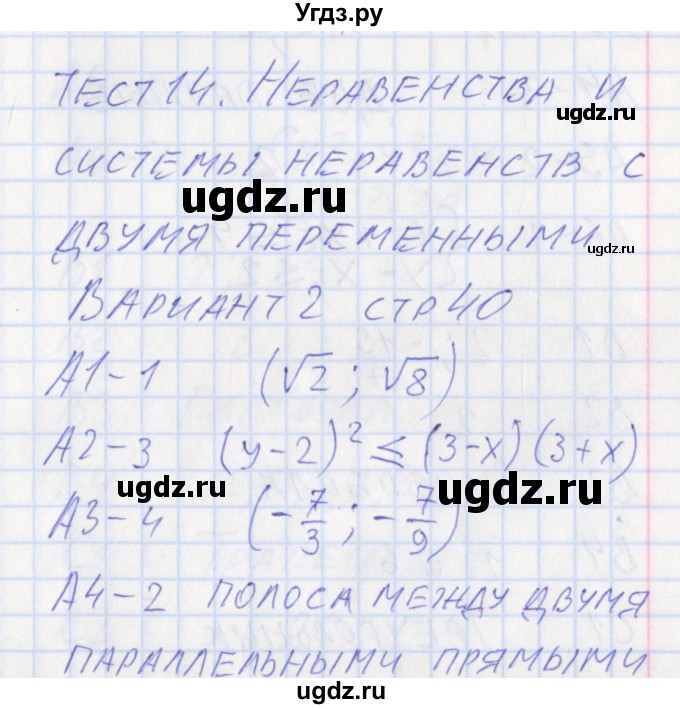 Угдз.ру
ТЕСТ 14. НЕРАВЕНСТВА И
ugdz.ru
СИСТЕМЫ НЕРАВЕНСТВ С
ugdz.ru
ДВУМЯ ПЕРЕМЕННЫМИ
ugdz.ru
ВАРИАНТ 2 СТР 40
А1-1 (√2; √8)
А2-3 (y-2)² ≤ (3-x)(3+x)
ugdz.ru ugdz.ru
А3-4 (-7/3; -7/9)
А4-2 ПОЛОСА МЕЖДУ ДВУМЯ
ugdz.ru
ПАРАЛЛЕЛЬНЫМИ ПРЯМЫМИ
ugdz.ru